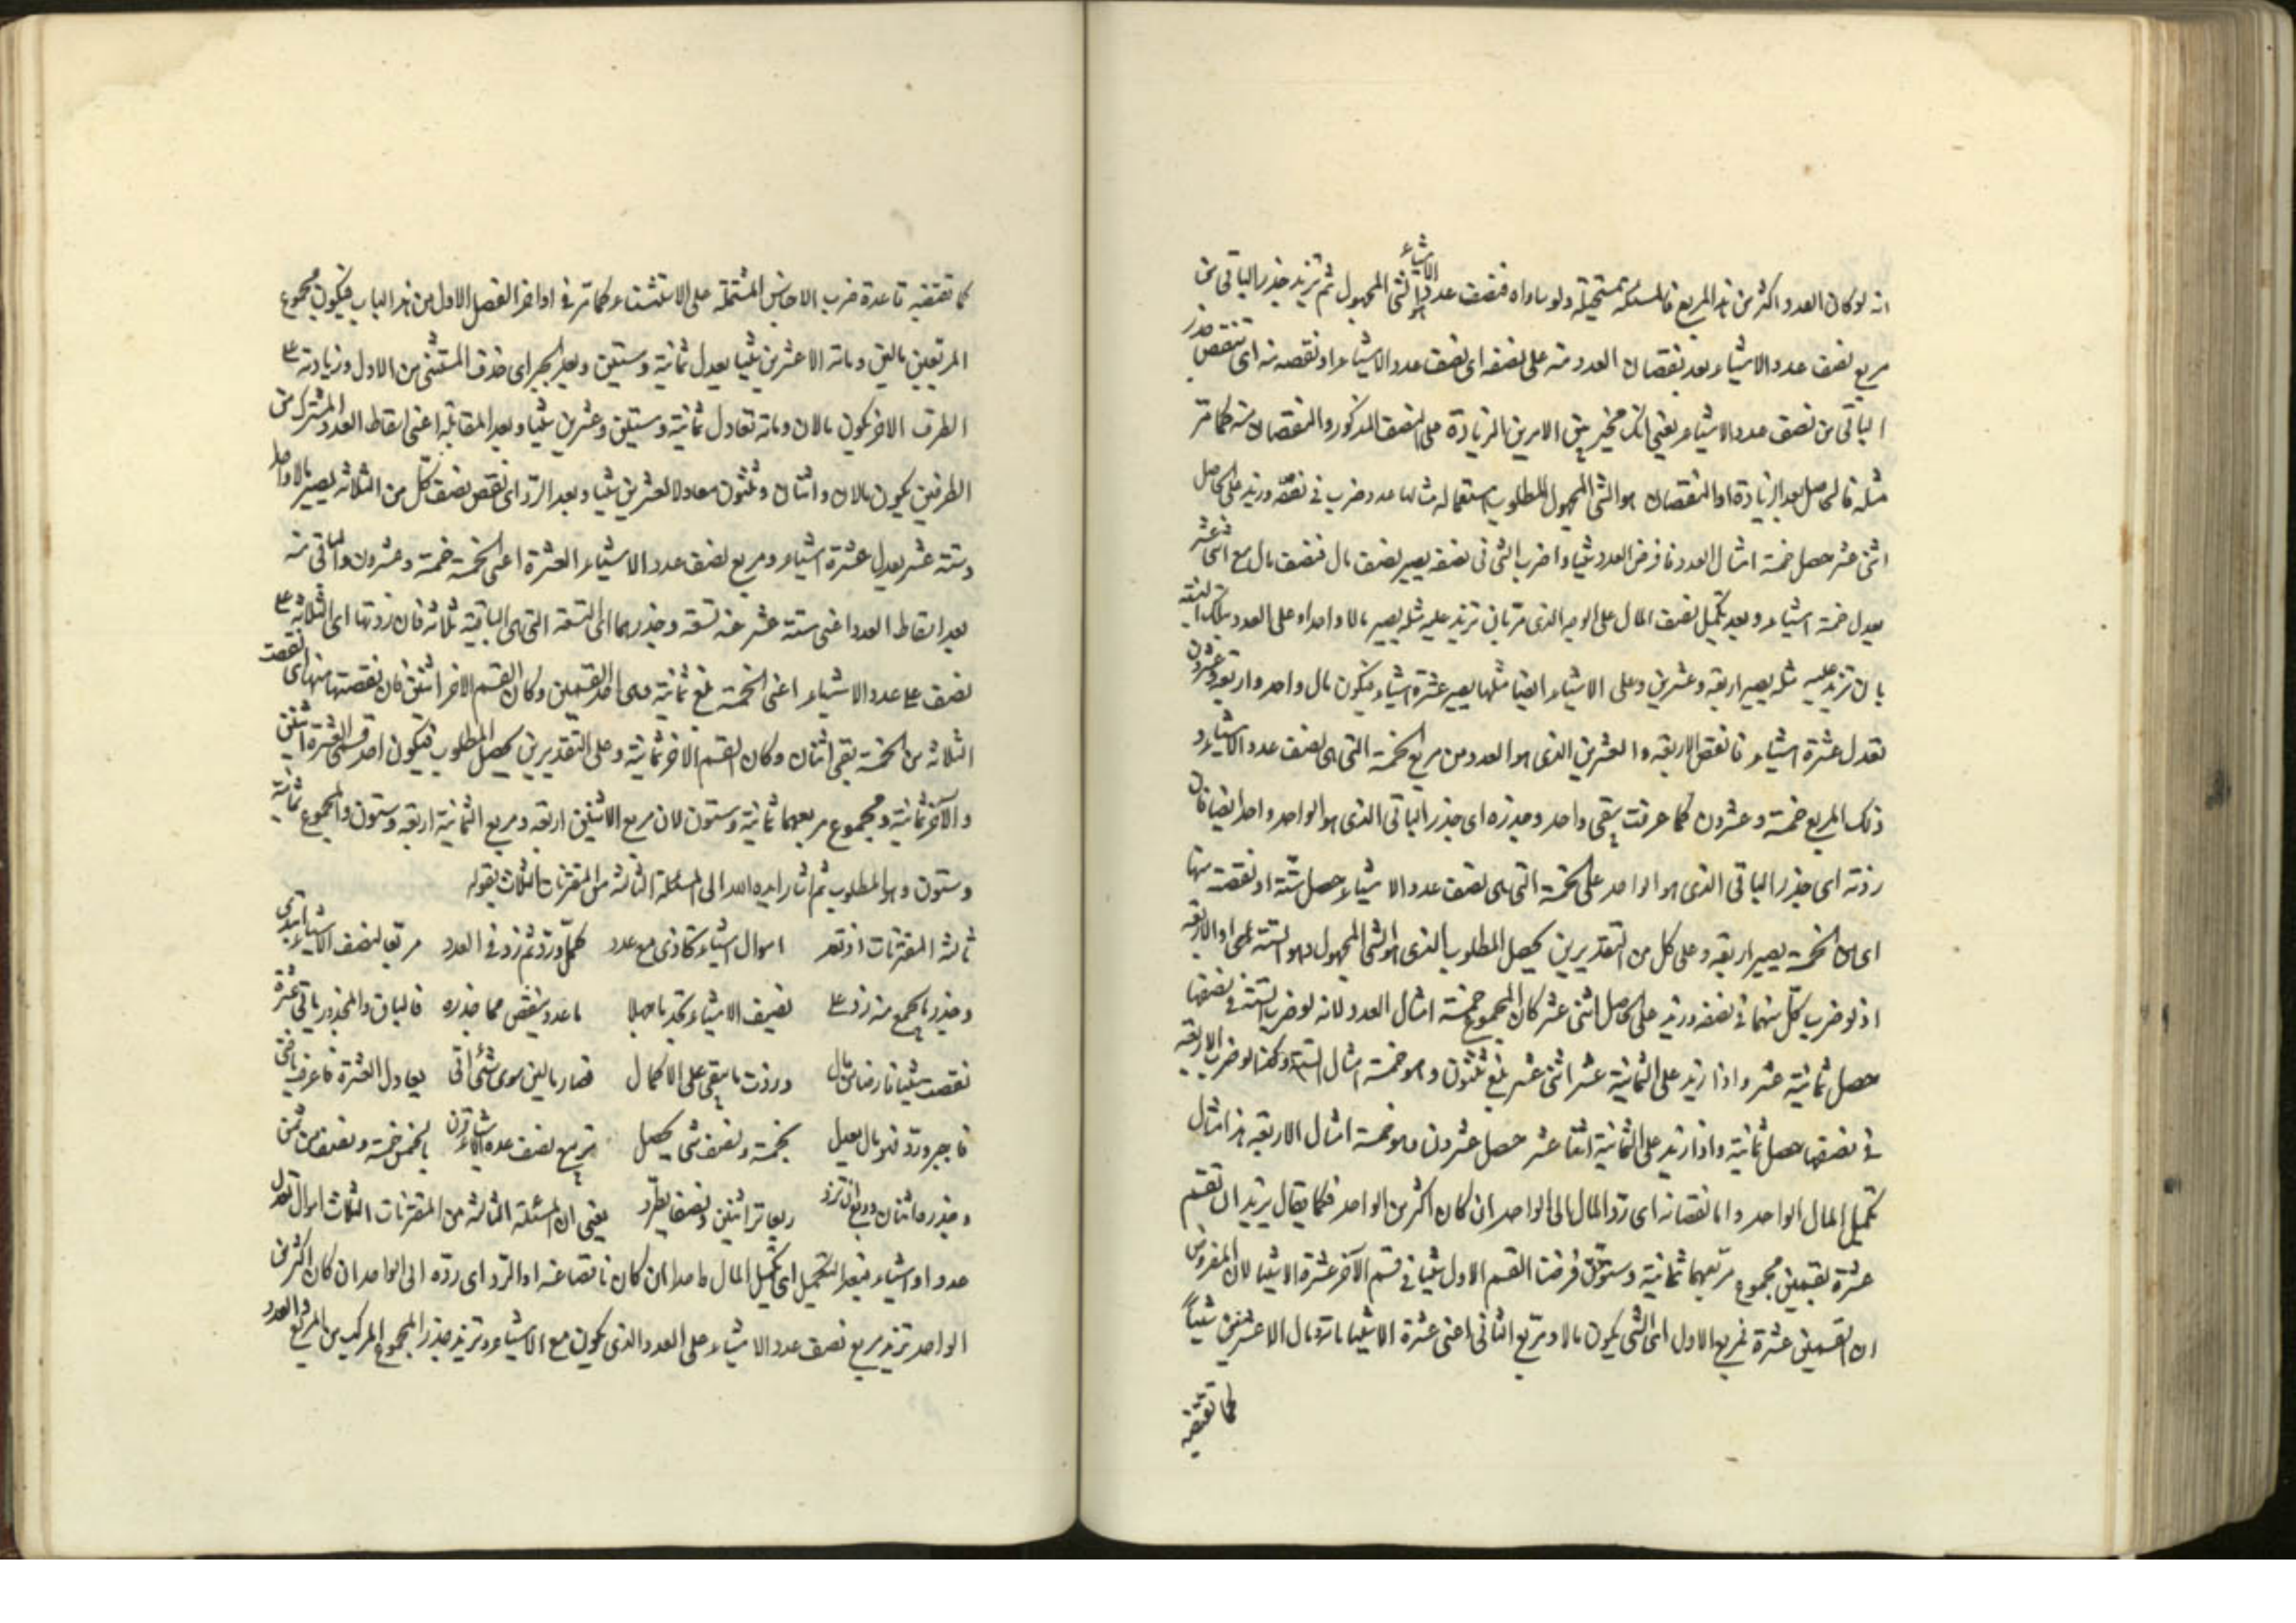 انه لو كان العدد اكثر من هذا المربع فالمسئلة مستحيلة ولو ساواه فنصف عدد الاشياء هو الشئ المجهول ثم تزيد جذر الباقى من
مربع نصف عدد الاشياء بعد نقصان العدد منه على نصفه اى نصف عدد الاشياء او نقصه منه اى تنقص جذر
الباقى من نصف عدد الاشياء يعنى انك مخير بين الامرين الزيادة على النصف المذكور والنقصان منه كما مر
مثله فالحاصل بعد الزيادة او النقصان هو الشئ المجهول المطلوب استعماله مثالها عدد ضرب فى نصفه وزيد على الحاصل
اثنى عشر حصل خمسة امثال العدد فافرض العدد شيئا واضرب الشئ فى نصفه يصير نصف مال فنصف مال مع اثنى عشر
يعدل خمسة اشياء وبعد تكميل نصف المال على الوجه الذى مر بان تزيد عليه مثله يصير مالا واحدا وعلى العدد تلك النسبة
بان تزيد عليه مثله يصير اربعة وعشرين وعلى الاشياء ايضا مثلها يصير عشرة اشياء فيكون مال واحد واربعة وعشرون
تعدل عشرة اشياء فانقص الاربعة والعشرين الذى هو العدد من مربع الخمسة التى هى نصف عدد الاشياء و
ذلك المربع خمسة وعشرون كما عرفت يبقى واحد وجذره اى جذر الباقى الذى هو الواحد واحد ايضا فان
زدته اى جذر الباقى الذى هو الواحد على الخمسة التى هى نصف عدد الاشياء حصل ستة او نقصته منها
اى من الخمسة يصير اربعة وعلى كل من التقديرين يحصل المطلوب الذى هو الشئ المجهول وهو الستة او الاربعة
اذ لو ضرب كل منهما فى نصفه وزيد على الحاصل اثنى عشر كان المجموع خمسة امثال العدد لانه لو ضرب الستة فى نصفها
حصل ثمانية عشر واذا زيد على الثمانية عشر اثنى عشر بلغ ثلثون وهو خمسة امثال الستة وكذا لو ضرب الاربعة
فى نصفها حصل ثمانية واذا زيد على الثمانية اثنا عشر حصل عشرون وهو خمسة امثال الاربعة هذا مثال
تكميل المال الواحد واما نقصانه اى رد المال الى الواحد ان كان اكثر من الواحد فكما يقال يزيد ان تقسم
عشرة بقسمين مجموع مربعهما ثمانية وستون فرضنا القسم الاول شيئا فى قسم الآخر عشرة الا شيئا لان المفروض
ان القسمين عشرة فمربع الاول اى الشئ يكون مالا ومربع الثانى اعنى عشرة الا شيئا مائة ومال الا عشرين شيئاً
كما تقتضيه
كما تقتضيه قاعدة ضرب الاجناس المشتملة على الاستثناء كما مر فى اواخر الفصل الاول من هذا الباب فيكون مجموع
المربعين مالين ومائة الا عشرين شيئا يعدل ثمانية وستين وبعد الجبر اى حذف المستثنى من الاول وزيادته على
الطرف الاخر يكون مالان ومائة تعادل ثمانية وستين وعشرين شيئا وبعد المقابلة اعنى اسقاط العدد المشترك من
الطرفين يكون مالان واثنان وثلثون معادلا لعشرين شيئا وبعد الرد اى نقص نصف كل من الثلاثة يصير مالا واحدا
وستة عشر يعدل عشرة اشياء ومربع نصف عدد الاشياء العشرة اعنى الخمسة خمسة وعشرون والباقى منه
بعد اسقاط العدد اعنى ستة عشر عنه تسعة وجذرها اى التسعة التى هى الباقية ثلاثة فان زدتها اى الثلاثة على
نصف على عدد الاشياء اعنى الخمسة بلغ ثمانية وهى احد القسمين وكان القسم الاخر اثنين فان نقصتها منها اى نقصت
الثلاثة من الخمسة بقى اثنان وكان القسم الاخر ثمانية وعلى التقديرين يحصل المطلوب فيكون احد قسمى العشرة اثنين
والآخر ثمانية ومجموع مربعهما ثمانية وستون لان مربع الاثنين اربعة ومربع الثمانية اربعة وستون والمجموع ثمانية
وستون وهو المطلوب ثم اشار ايده الله الى المسئلة الثالثة من المقترنات الثلاث بقوله
ثالثة المقترنات اذ تعد اموال اشياء كاذى مع عدد كمل ورد ثم زد فى العدد مربعا لنصف الاشياء
وجذر ما يجمع منه زد على نصيف الاشياء تجد ما جهلا ما عدد ينقص مما جذره فالباق والمجذور باقى عشرة
نقصت شيئا فارضا من مال وزدت ما يبقى على الاكمال فصار مالين سوى شئ اتى يعادل العشرة فاعرف يا فتى
فاجبر ورد فهو مال يعدل بخمسة ونصف شئ يحصل تربيع نصف عدة الاشياء قرن بالخمس خمسة ونصف من ثمن
وجذره اثنان وربع ان تزد ربعا تر اثنين ونصفا يطرد يعنى ان المسئلة الثالثة من المقترنات الثلاث اموال تعدل
عددا واشياء فبعد التكميل اى تكميل المال واحدا ان كان ناقصا عنه او الرد اى رده الى الواحد ان كان اكثر من
الواحد تزيد مربع نصف عدد الاشياء على العدد الذى يكون مع الاشياء وتزيد جذر المجموع المركب من المربع والعدد